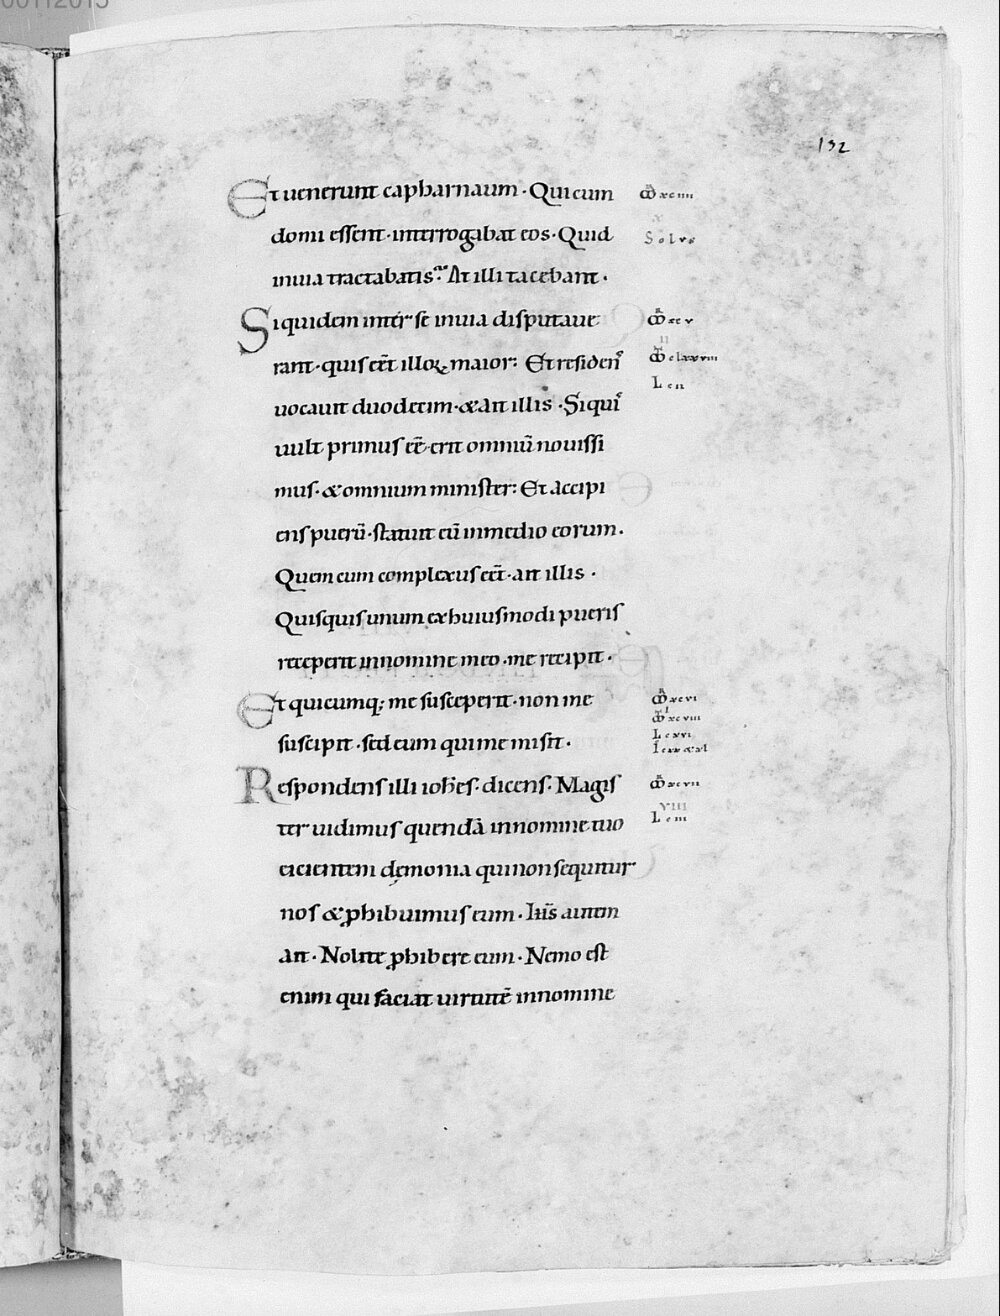 132
Et uenerunt capharnaum · Qui cum
domi essent · interrogabat eos · Quid
inuia tractabatis? At illi tacebant ·
Siquidem inter se inuia disputaue
rant · quis eēt illoꝝ maior: Et residenſ
uocauit duodecim · & ait illis · Siquiſ
uult primus eē · erit omniū nouissi
mus · & omnium minister: Et accipi
ens puerū · statuit eū inmedio eorum ·
Quem cum complexus eēt · ait illis ·
Quisquis unum ex huiusmodi pueris
receperit innomine meo · me recipit ·
Et quicumq; me susceperit · non me
suscipit · sed eum qui me misit ·
Respondens illi ioħes · dicens · Magis
ter uidimus quendā innomine tuo
eicientem dęmonia qui non sequitur
nos & ꝓhibuimus eum · Ih̄s autem
ait · Nolite ꝓhibere eum · Nemo est
enim qui faciat uirtutē innomine
xciiii
Solus
xcv
xcvi
xcvii
VIII